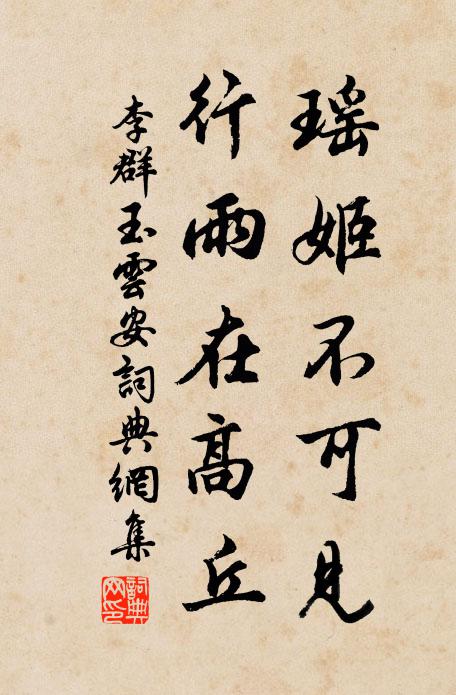 瑶姬不可見
行雨在高丘
李群玉雲安詞典網集
詞典
网印